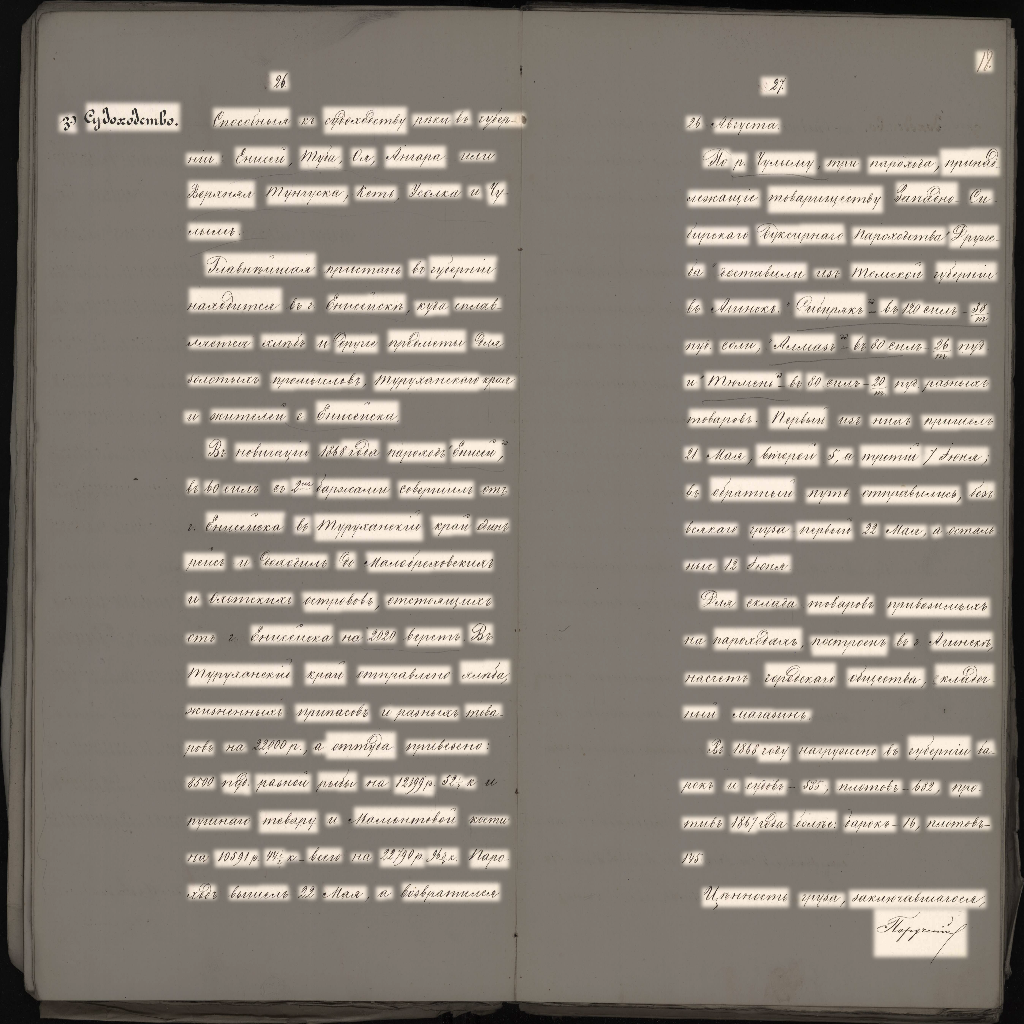 26
3.) Судоходство. Способныя къ судоходству рѣки въ губер-
ніи Енисей, Туба, Оя, Ангара или
Верхняя Тунгуска, Кеть, Усолка и Чу-
лымъ.
Главнѣйшая пристань въ губерніи
находится въ г. Енисейскѣ, куда сплав-
ляется хлѣбъ и другіе предметы для
золотыхъ промысловъ, Туруханскаго края
и жителей г. Енисейска.
Въ новигацію 1868 года пароходъ "Енисей",
въ 60 силъ съ 2мя баржами совершилъ отъ
г. Енисейска въ Туруханскій край одинъ
рейсъ и доходилъ до Малобреховскихъ
и охотскихъ острововъ, отстоящихъ
отъ г. Енисейска на 2020 верстъ. Въ
Туруханскій край отправлено хлѣба,
жизненныхъ припасовъ и разныхъ това-
ровъ на 22000 р., а оттуда привезено:
6500 пуд. разной рыбы на 12199 р. 52½ к и
пушнаго товару и Мамонтовой кости
на 10591 р. 44½ к - всего на 22790 р. 96½ к. Паро-
ходъ вышелъ 29 Мая, а возвратился
27
26 Августа.
По р. Чулыму, три парохода, принад-
лежащіе товариществу Западно-Си-
бирскаго Буксирнаго Пароходства "Друж-
ба" доставили изъ Томской губерніи
въ Ачинскъ: "Сибирякъ" - въ 120 силъ - 38/т
пуд. соли, "Алмазъ" - въ 60 силъ - 26/т пуд
и "Тюмень" - въ 80 силъ - 20/т пуд. разныхъ
товаровъ. Первый изъ нихъ пришелъ
21 Мая, второй 5, а третій 7 Іюня;
въ обратный путь отправились, безъ
всякаго груза первый 22 Мая, а осталь
ные 12 Іюня
Для склада товаровъ привозимыхъ
на пароходахъ, построенъ въ г Ачинскѣ,
насчетъ городскаго общества, складоч
ный магазинъ.
Въ 1868 году нагружено въ губерніи ба-
рокъ и судовъ - 535, плотовъ - 632, про-
тивъ 1867 года болѣе: барокъ - 16, плотовъ -
145
Цѣнность груза, заключавшагося,